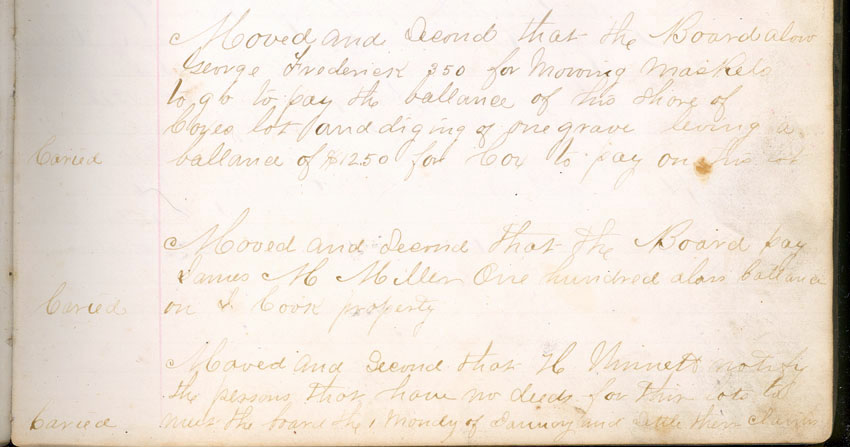 Moved and Second that the Board alow
George Frederick 350 for Mowing
to go to pay the ballance of his shore of
lot and diging of one grave leving a
Caried ballance of $1250 for Cox to pay on his lot
Moved and Second that the Board pay
James M Miller One hundred alars ballance
Caried on J Cook property
Moved and Second that H notify
the persons that have no deeds for thir lots to
Caried meet the board the 1 Mondy of and settle there claims